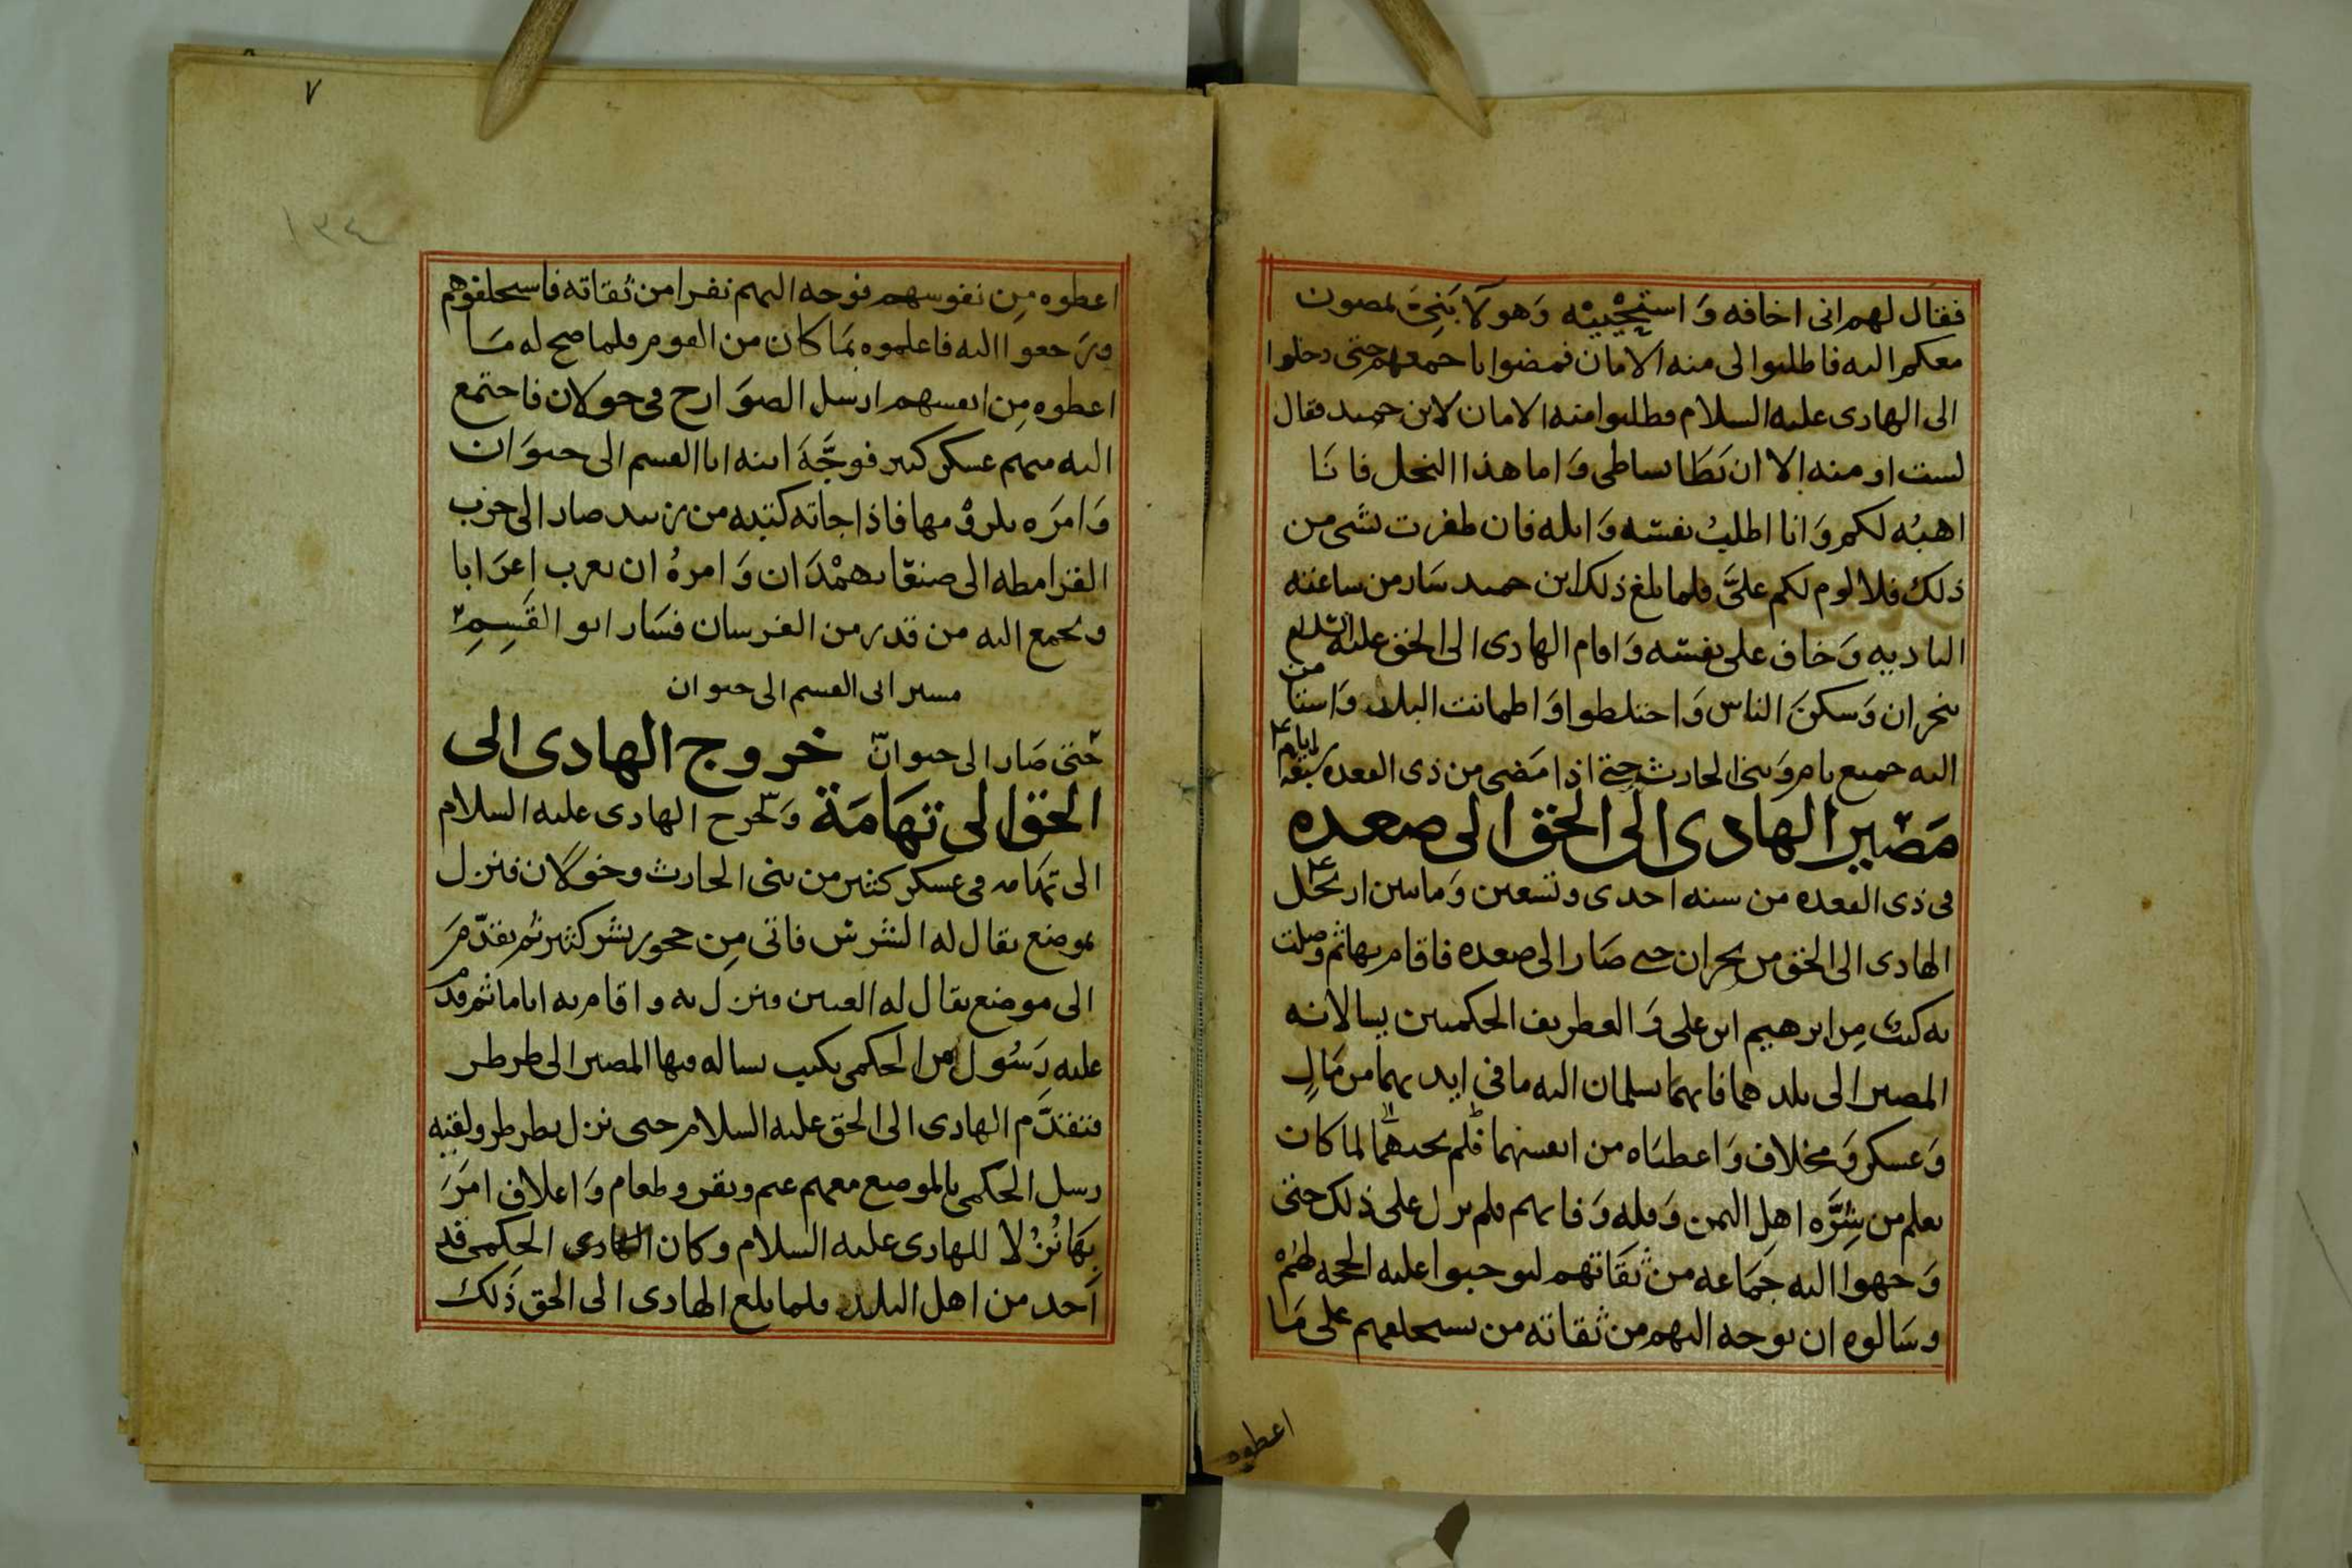 فقال لهم انى اخافه وَاستحييه وَهو لا ينحى لمصون
معكم اليه فاطلبوا لى منه الامان فمضوا باجمعهم حتى دخلوا
الى الهادى عليه السلام فطلبوا منه الامان لابن حميد فقال
لست اومنه الا ان يَطَا بساطى وَاما هذا النخل فانَا
اهبُه لكم وَانا اطلبُ نفسَه وَابله فان ظفرت بشى من
ذلك فلا لوم لكم علىَّ فلما بلغ ذلك ابن حميد سَار من ساعته
الباديه وَخاف على نفسَه وَاقام الهادى الى الحق عليه السلم
نجران وَسكنَ الناس وَاختلطوا وَاطمانت البلد وَاستامن
اليه جميع يام وَبنى الحارث حتى اذا مَضى من ذى القعده سبعَة ايام
مَصير الهادى الى الحق الى صعده
فى ذى القعده من سنه احدى وتسعين وَماتين ارتحَل
الهادى الى الحق من نجران حتى صَار الى صعده فاقام بها ثم وصلت
به كتبٌ مِن ابرهيم ابن على وَالغطريف الحكميين يسالانه
المصير الى بلدهما فانهمَا يسلمان اليه ما فى ايديهمَا من مَالٍ
وَعسكر وَمخلاف وَاعطيَاه من انفسهما فلم يجبهمَا لما كان
يعلم من شِرَّه اهل اليمن وَقله وَفايهم فلم يزل على ذلك حتى
وَجهوا اليه جمَاعه من ثقَاتهم ليوجبوا عليه الحجه لهمْ
وسَالوه ان يوجه اليهم من ثقاته من يستحلفهم على مَا
اعطوه
٧
١٣٤
اعطوه مِن نفوسهم فوجه اليهم نفرا من ثقاته فاستحلفوهم
ورَجعوا اليه فاعلموه بمَا كان من القوم فلما صح له مَا
اعطوه مِن انفسهم ارسل الصوَارخ فى خولان فاجتمع
اليه منهم عسكر كبير فوجَّهَ ابنه ابا القسم الى خيوَان
وَامرَه بلزومها فاذا جاته كتبه من زبيد صار الى حرب
القرامطه الى صنعَا بهمْدَان وَامرهُ ان يعرب اعرَابا
ويجمع اليه من قدر من الفرسان فسَار ابو القَسِمِ
مسير ابى القسم الى خيوان
حَتى صَار الى خيوان خروج الهادى الى
الحق الى تهَامَة وَخرج الهادى عليه السلام
الى تهَامه فى عسكر كثير من بنى الحارث وخولان فنزل
بموضع يقال له الشرش فاتى مِن حجور بشر كثير ثم تقدّمَ
الى موضع يقال له العيين فنزل به واقام به اياما ثم قدم
عليه رَسُول من الحكمى بكتب يساله فيها المصير الى طرطر
فتقدَّم الهادى الى الحق عليه السلام حتى نزل بطرطر ولقيه
رسل الحكمى بالموضع معهم غنم وبقر وطعام وَاعلاف امرَ
بهَا نُزُلا للهادى عليه السلام وكان الحكمى قد
اَخذ من اهل البلد فلما بلغ الهادى الى الحق ذَلك